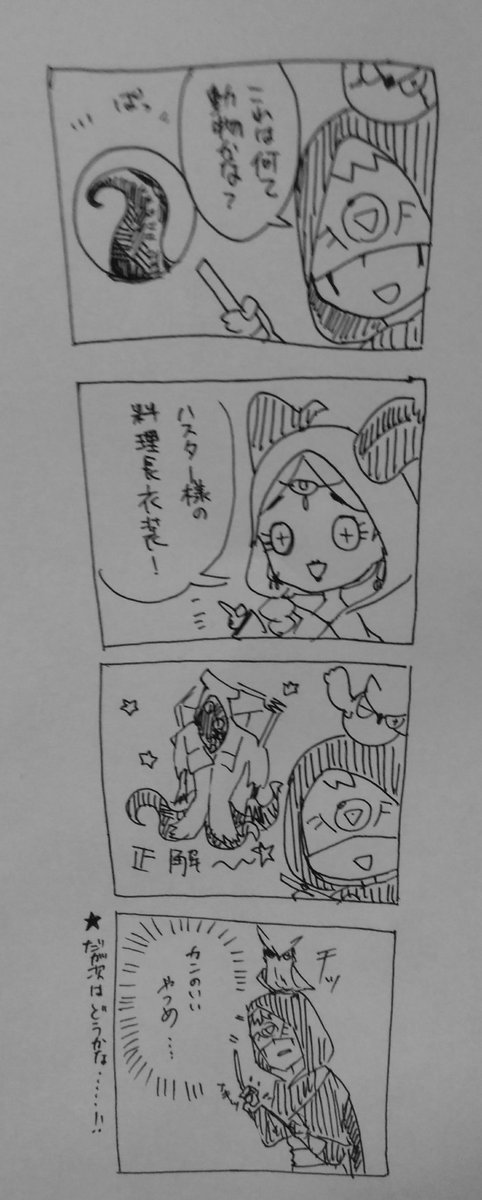 これは何て
動物かな？
ぱっ
ハスター様の
料理長衣装！
正解〜〜☆
チッ
カンのいい
やつめ....
★だが次はどうかな......!!